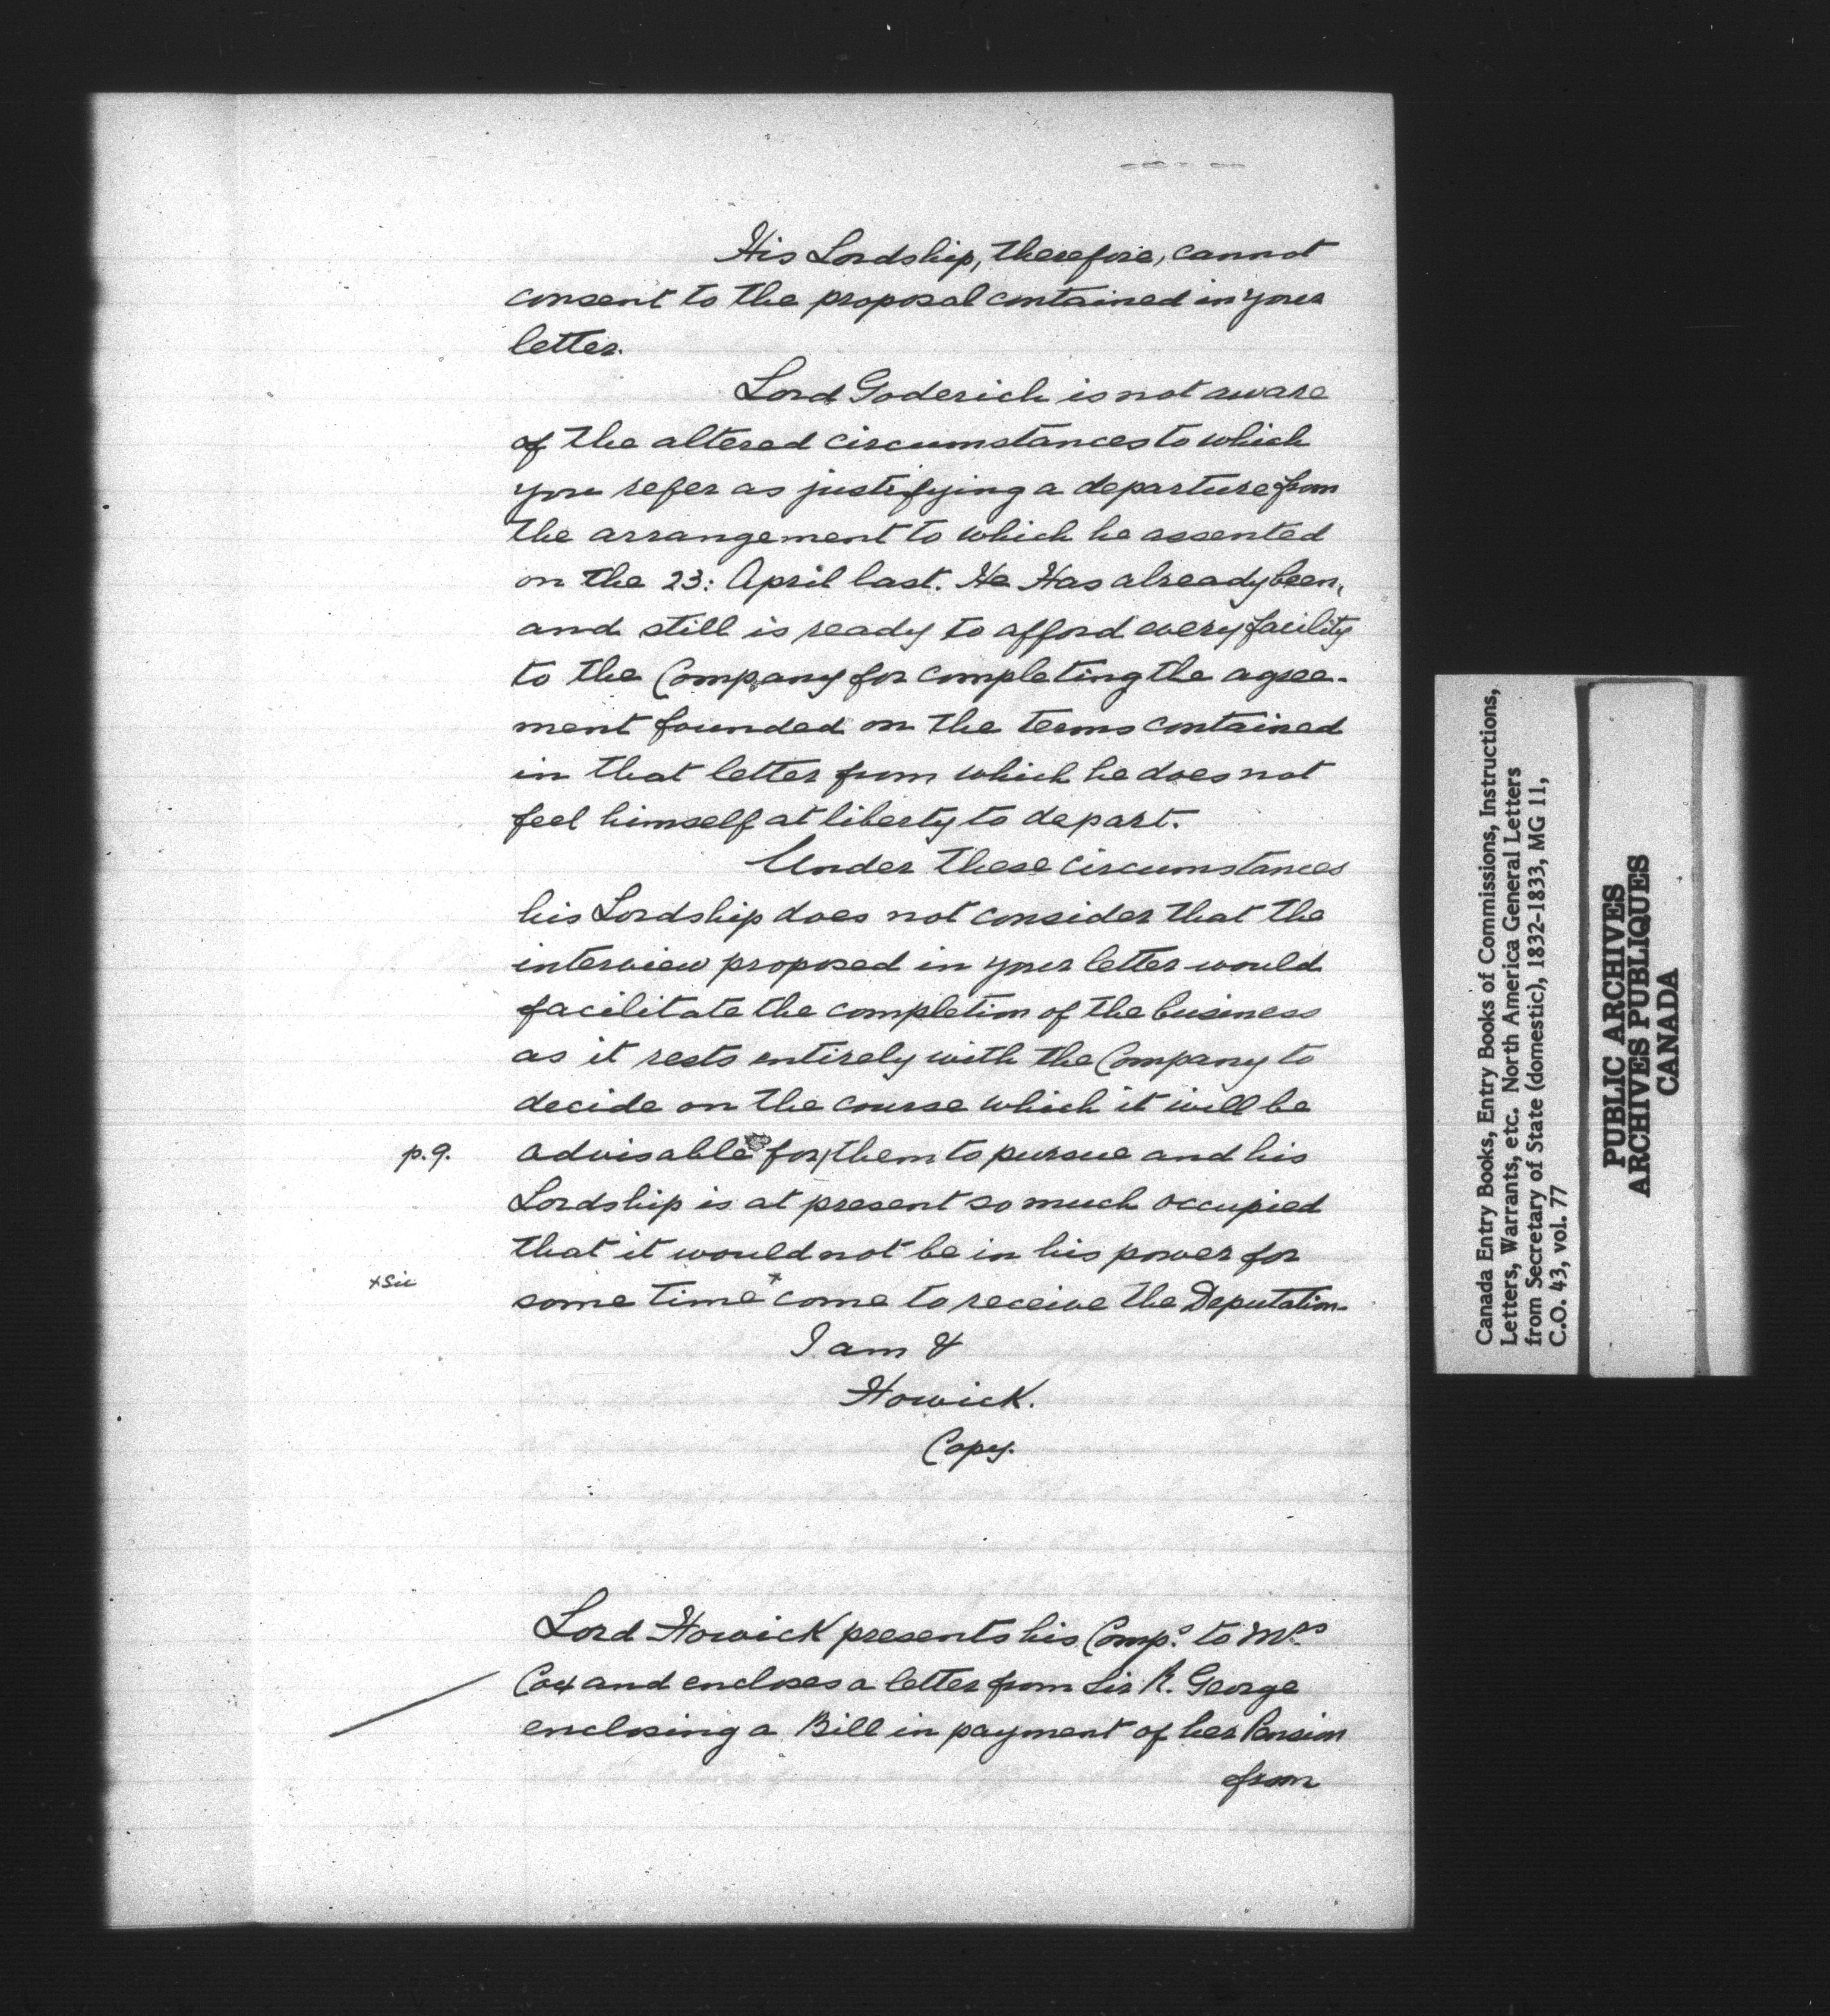 His Lordship, therefore, cannot
consent to the proposal contained in your
letter.
Lord Goderich is not aware
of the altered circumstances to which
you refer as justifying a departure from
the arrangement to which he assented
on the 23: April last. He Has already been,
and still is ready to afford every facility
to the Company for completing the agree-
ment founded on the terms contained
in that letter from which he does not
feel himself at liberty to depart.
Under these circumstances
his Lordship does not consider that the
interview proposed in your letter would
facilitate the completion of the business
as it rests entirely with the Company to
decide on the course which it will be
p.9. advisable for/them to pursue and his
Lordship is at present so much occupied
that it would not be in his power for
x sic some time x come to receive the Deputation.
I am &
Howick.
Copy.
Lord Howick presents his Comps. to Mrs
Cox and encloses a letter from Sir R. George
enclosing a Bill in payment of her Pension
from
Canada Entry Books, Entry Books of Commissions, Instructions,
Letters, Warrants, etc. North America General Letters
from Secretary of State (domestic), 1832-1833, MG 11,
C.O. 43, vol. 77
PUBLIC ARCHIVES
ARCHIVES PUBLIQUES
CANADA